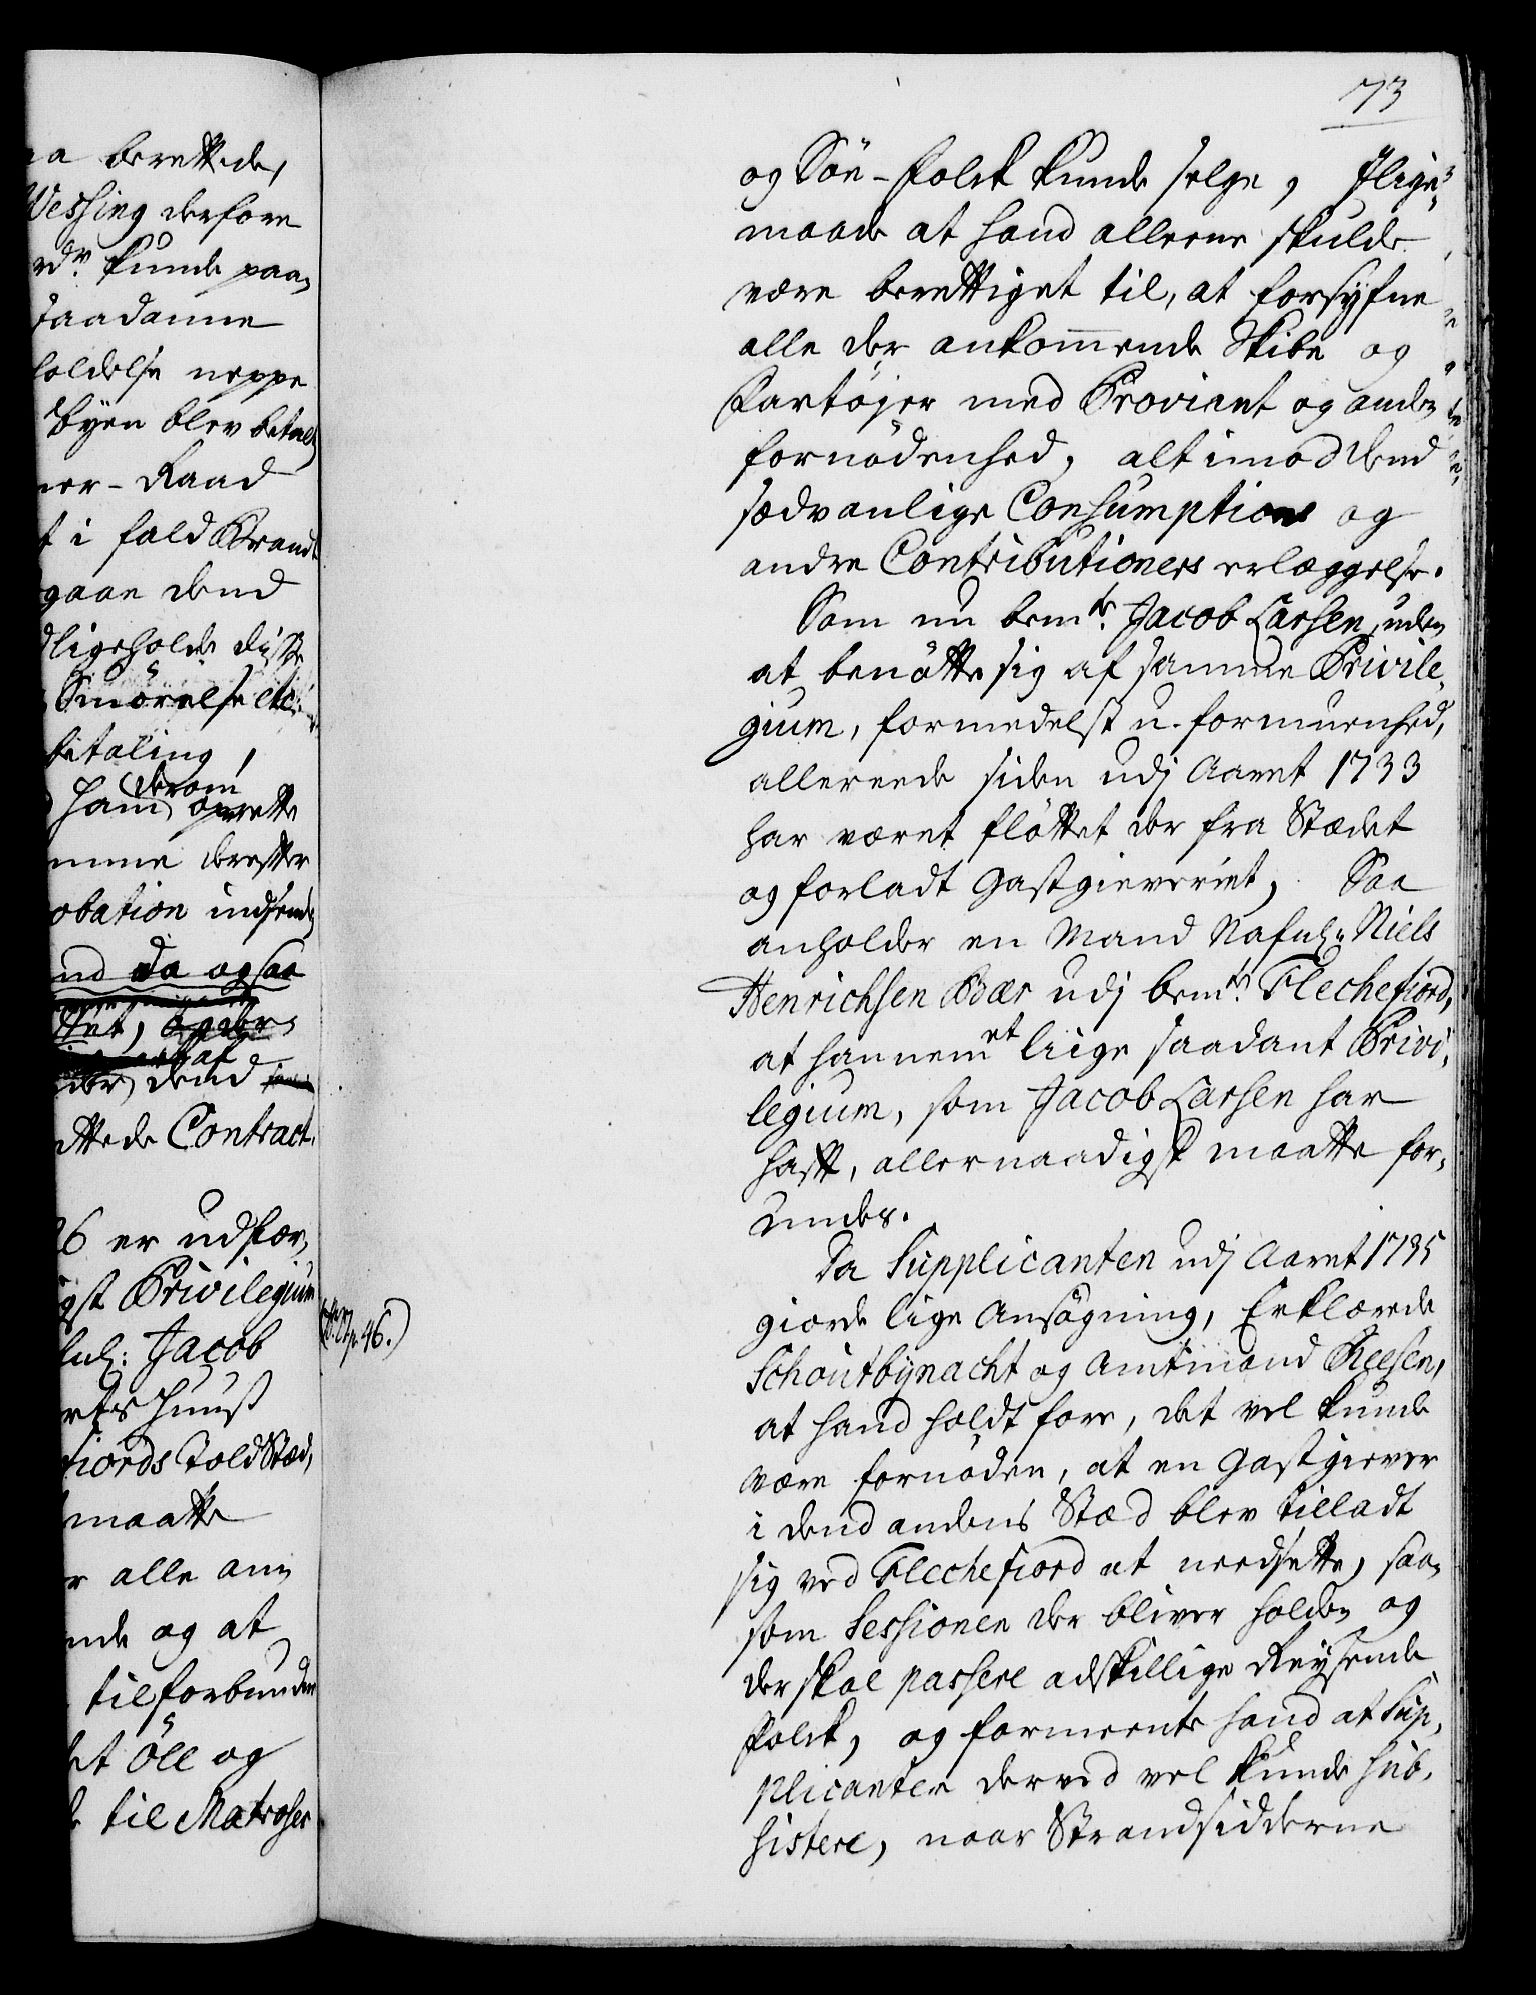 aa berettede,
Wessing derfore
kunde paa-
saadanne
holdelse neppe
Byen blev betalt
ner-Raad
t i fald Brandt
gaae dend
ligeholde disse
Smörelse etc:
betaling,
derom
ham oprette
mme derefter
obation indsende
nd da ogsaa
af
dend
ttede Contract.
26 er udfær-
igst Privilegium
Jacob
erts-huuß
fiords Toldstæd,
maatte
r alle an-
nde og at
tilforbunden
et öll og
til Matroser
73
og Söe-folck kunde selge, Jlige-
maade at hand alleene skulde
være berettiget til, at forsyfne
alle der ankommende Skibe og
Fartöjer med Proviant og anden
fornödenhed, alt imod dend
sædvanlige Consumptions og
andre Contributioners erlæggelse.
Som nu bemte. Jacob Larsen, uden
at benötte sig af samme Privile-
gium, formedelst u-formuenhed,
allereede siden udj Aaret 1733
har været flöttet der fra Stædet
og forladt Gastgieveriet, Saa
anholder en Mand Nafnl. Niels
Henrichsen Bær udj bemte. Flechefiord,
at hannem et liige saadant Privi-
legium, som Jacob Larsen har
hafft, allernaadigst maatte for-
undes.
Da Supplicanten udj Aaret 1735
giorde lige Ansögning, Erklærede
Schoutbynacht og Amtmand Reesen,
at hand holdt fore, det vel kunde
være fornöden, at en Gastgiever
i dend andens Stæd blev tilladt
sig ved Flechefiord at needsette, saa-
som Sessionen der bliver holden og
der skal passere adskillige Reysende
Folck, og formeente hand at Sup-
plicanten derved vel kunde sub-
sistere, naar Strandsidderne
p. 46.)